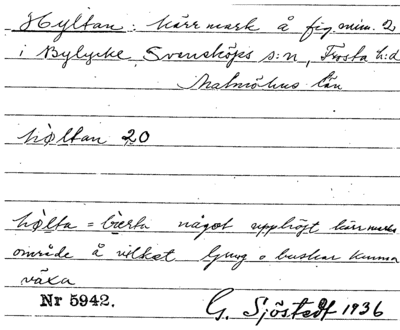 Hyltan : kärrmark å fig. min. 2
i Bylycke, Svensköps s:n, Frosta h:d
Malmöhus län
høltan 20
hølta = bærta något upphöjt kärrmarks
område å vilket ljung o buskar kunna
växa
Nr 5942. G. Sjöstedt 1936